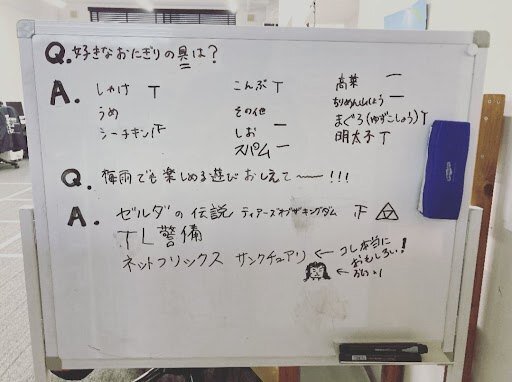 Q. 好きなおにぎりの具は？
A. しゃけ T こんぶ T 高菜 一
うめ その他 ちりめんさんしょう 一
シーチキン 下 しお 一 まぐろ(ゆずこしょう) T
スパム 一 明太子 T
Q. 梅雨でも楽しめる遊びおしえて〜〜!!!
A. ゼルダの伝説 ティアーズオブザキングダム 下
TL警備
ネットフリックス サンクチュアリ ← コレ本当におもしろい!